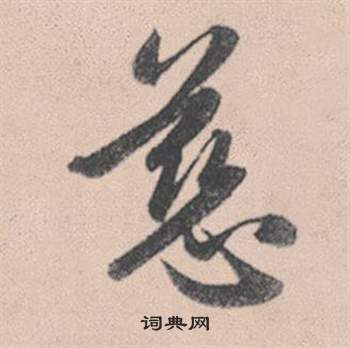 慈
词典网